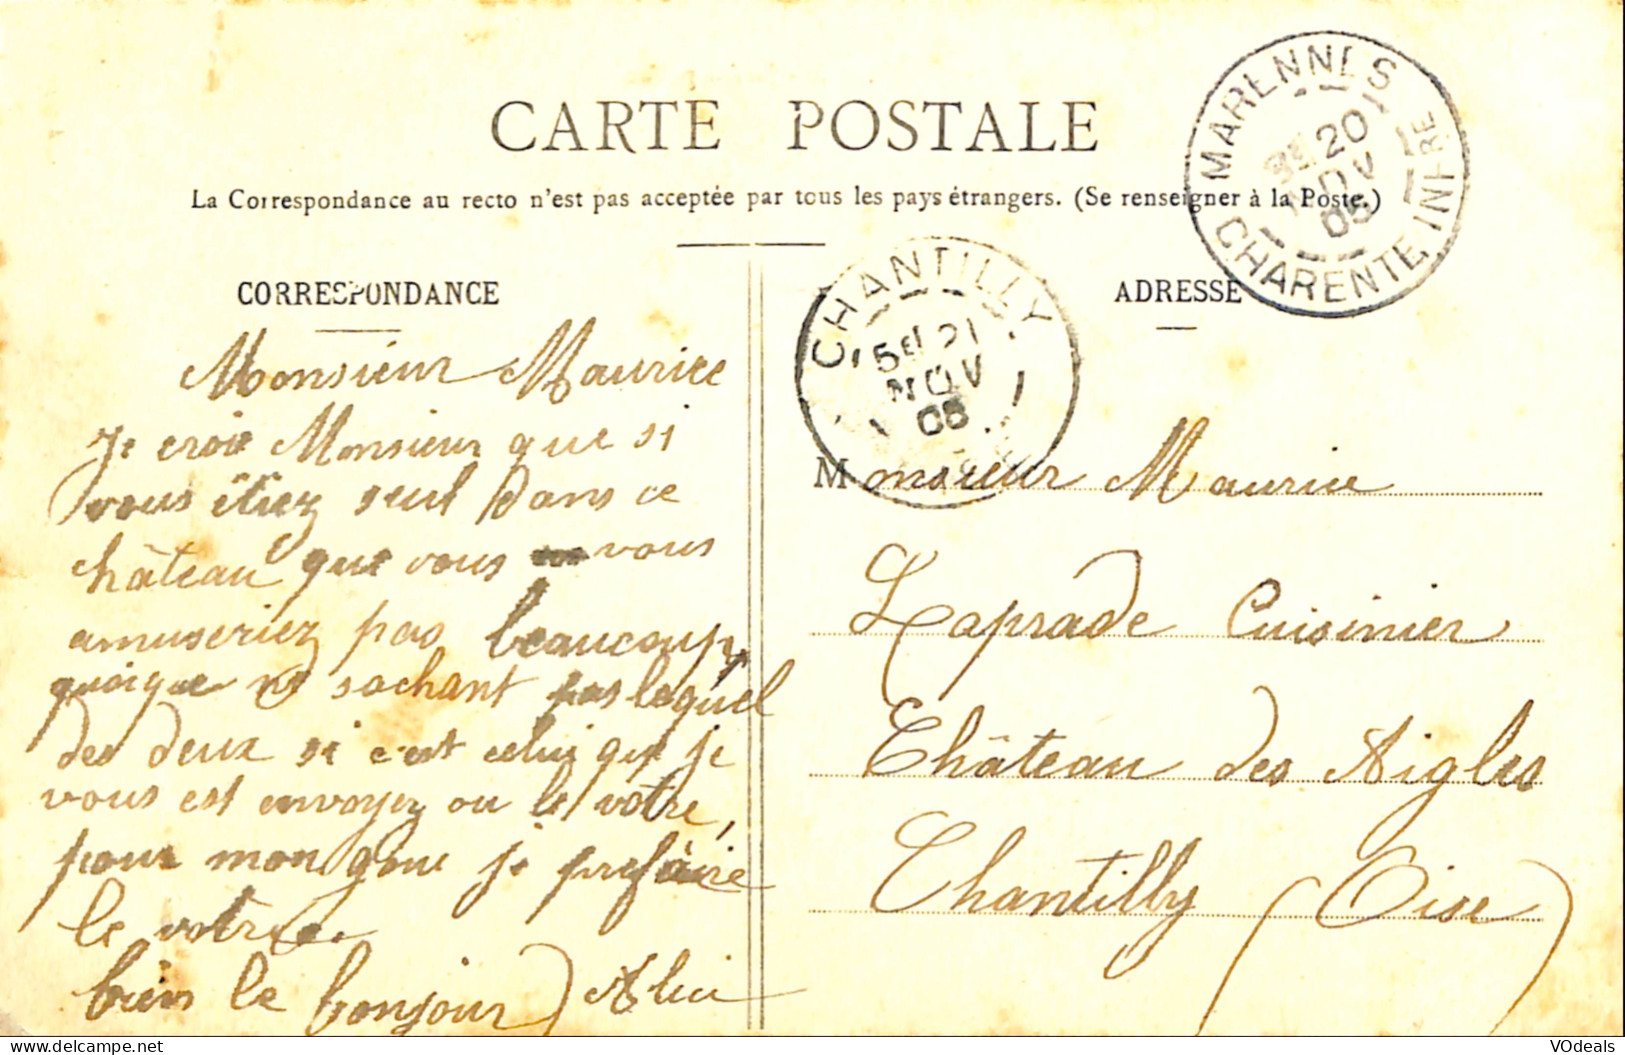 CARTE POSTALE
La Correspondance au recto n'est pas acceptée par tous les pays étrangers. (Se renseigner à la Poste.)
CORRESPONDANCE
ADRESSE
MARENNES
20
NOV
05
CHARENTE INFRE
CHANTILLY
5E 21
NOV
05
Monsieur Maurice
Je croie Monsieur que si
vous êtiez seul dans ce
château que vous vous
amuseriez pas beaucoup,
quoique ne sachant pas lequel
des deux si c'est celui que je
vous est envoyez ou le votre,
pour mon gout je prefàire
le votre.
bien le bonjour Alice
Monsieur Maurice
Laprade Cuisinier
Château des Aigles
Chantilly (Oise)
VOdeals
www.delcampe.net